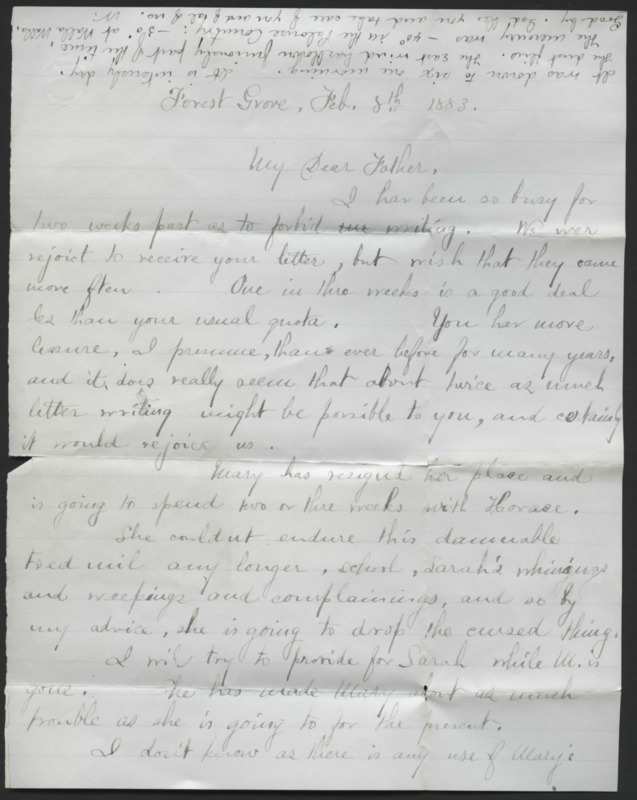 Forest Grove, Feb. 8th 1883.
My Dear Father,
I hav been so busy for
two weeks past as to forbid writing. We wer
rejoict to receive your letter, but wish that they came
more often. One in thre weeks is a good deal
les than your usual quota. You hav more
leasure, I presume, than ever before for many years,
and it does really seem that about twice as much
letter writing might be possible to you, and certainly
it would rejoice us.
Mary has resigned her place and
is going to spend two or thre weeks with Horace.
She couldnt endure this damnable
tred mil any longer, school, Sarah's whinings
and weepings and complainings, and so by
my advice, she is going to drop the cursed thing.
I wil try to provide for Sarah while M. is
gone. She has made Mary about as much
trouble as she is going to for the present.
I don't know as there is any use of Mary's
It was down to six one morning. It is intensely dry.
The dust flies. The East wind has blown furiously part of the time.
The mercury was -40° in the Palouse Country; -30° at Walla Walla.
Good by. God bles you and take care of you and of al of us.
W.